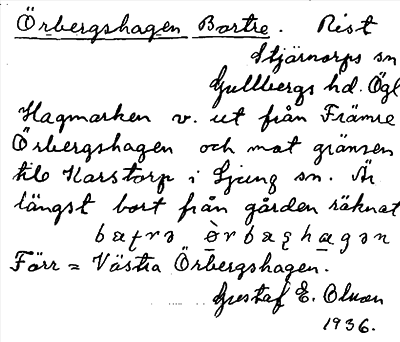 Örbergshagen Bortre. Rist
Stjärnorps sn
Gullbergs hd. Ögl
Hagmarken v. ut från Främre
Örbergshagen och mot gränsen
till Karstorp i Ljung sn. Är
längst bort från gården räknat
Förr = Västra Örbergshagen.
Gustaf E. Olsson
1936.